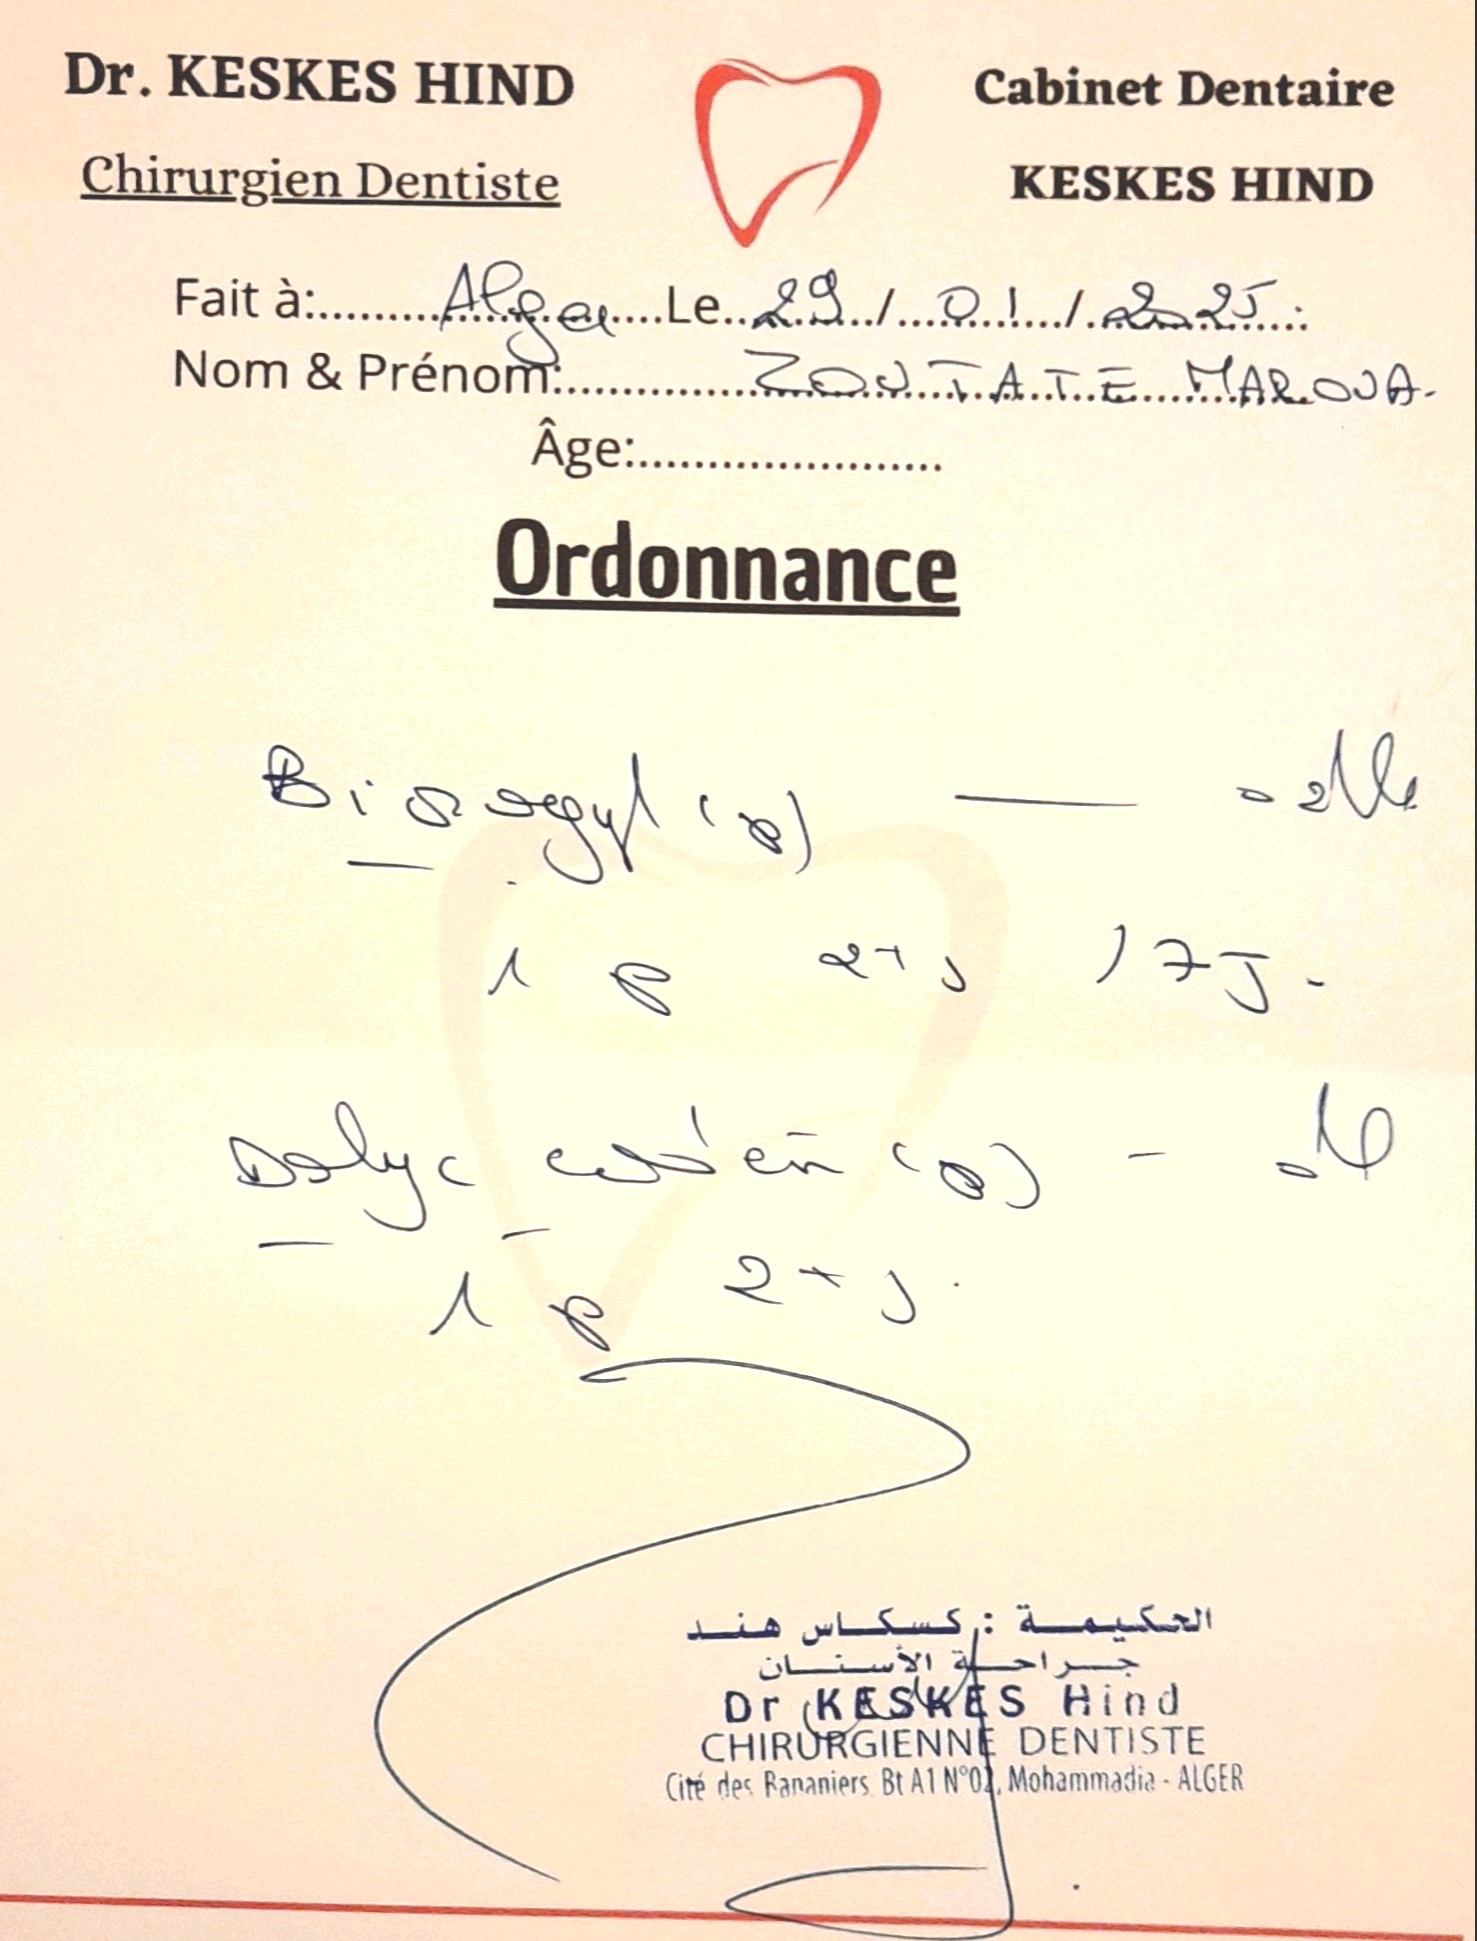 Dr. KESKES HIND
Chirurgien Dentiste
Cabinet Dentaire
KESKES HIND
Fait à:.........Alger....Le..29../...01.../..2025....
Nom & Prénom:............ZOUTATE MAROUA.
Âge:.......................
Ordonnance
(p) —
1 p 2 x j / 7J.
Dolyc codéin (p) -
1 p 2 x j.
الحكيمة : كسكاس هند
جراحة الأسنان
Dr KESKES Hind
CHIRURGIENNE DENTISTE
Cité des Bananiers Bt A1 N°02, Mohammadia - ALGER